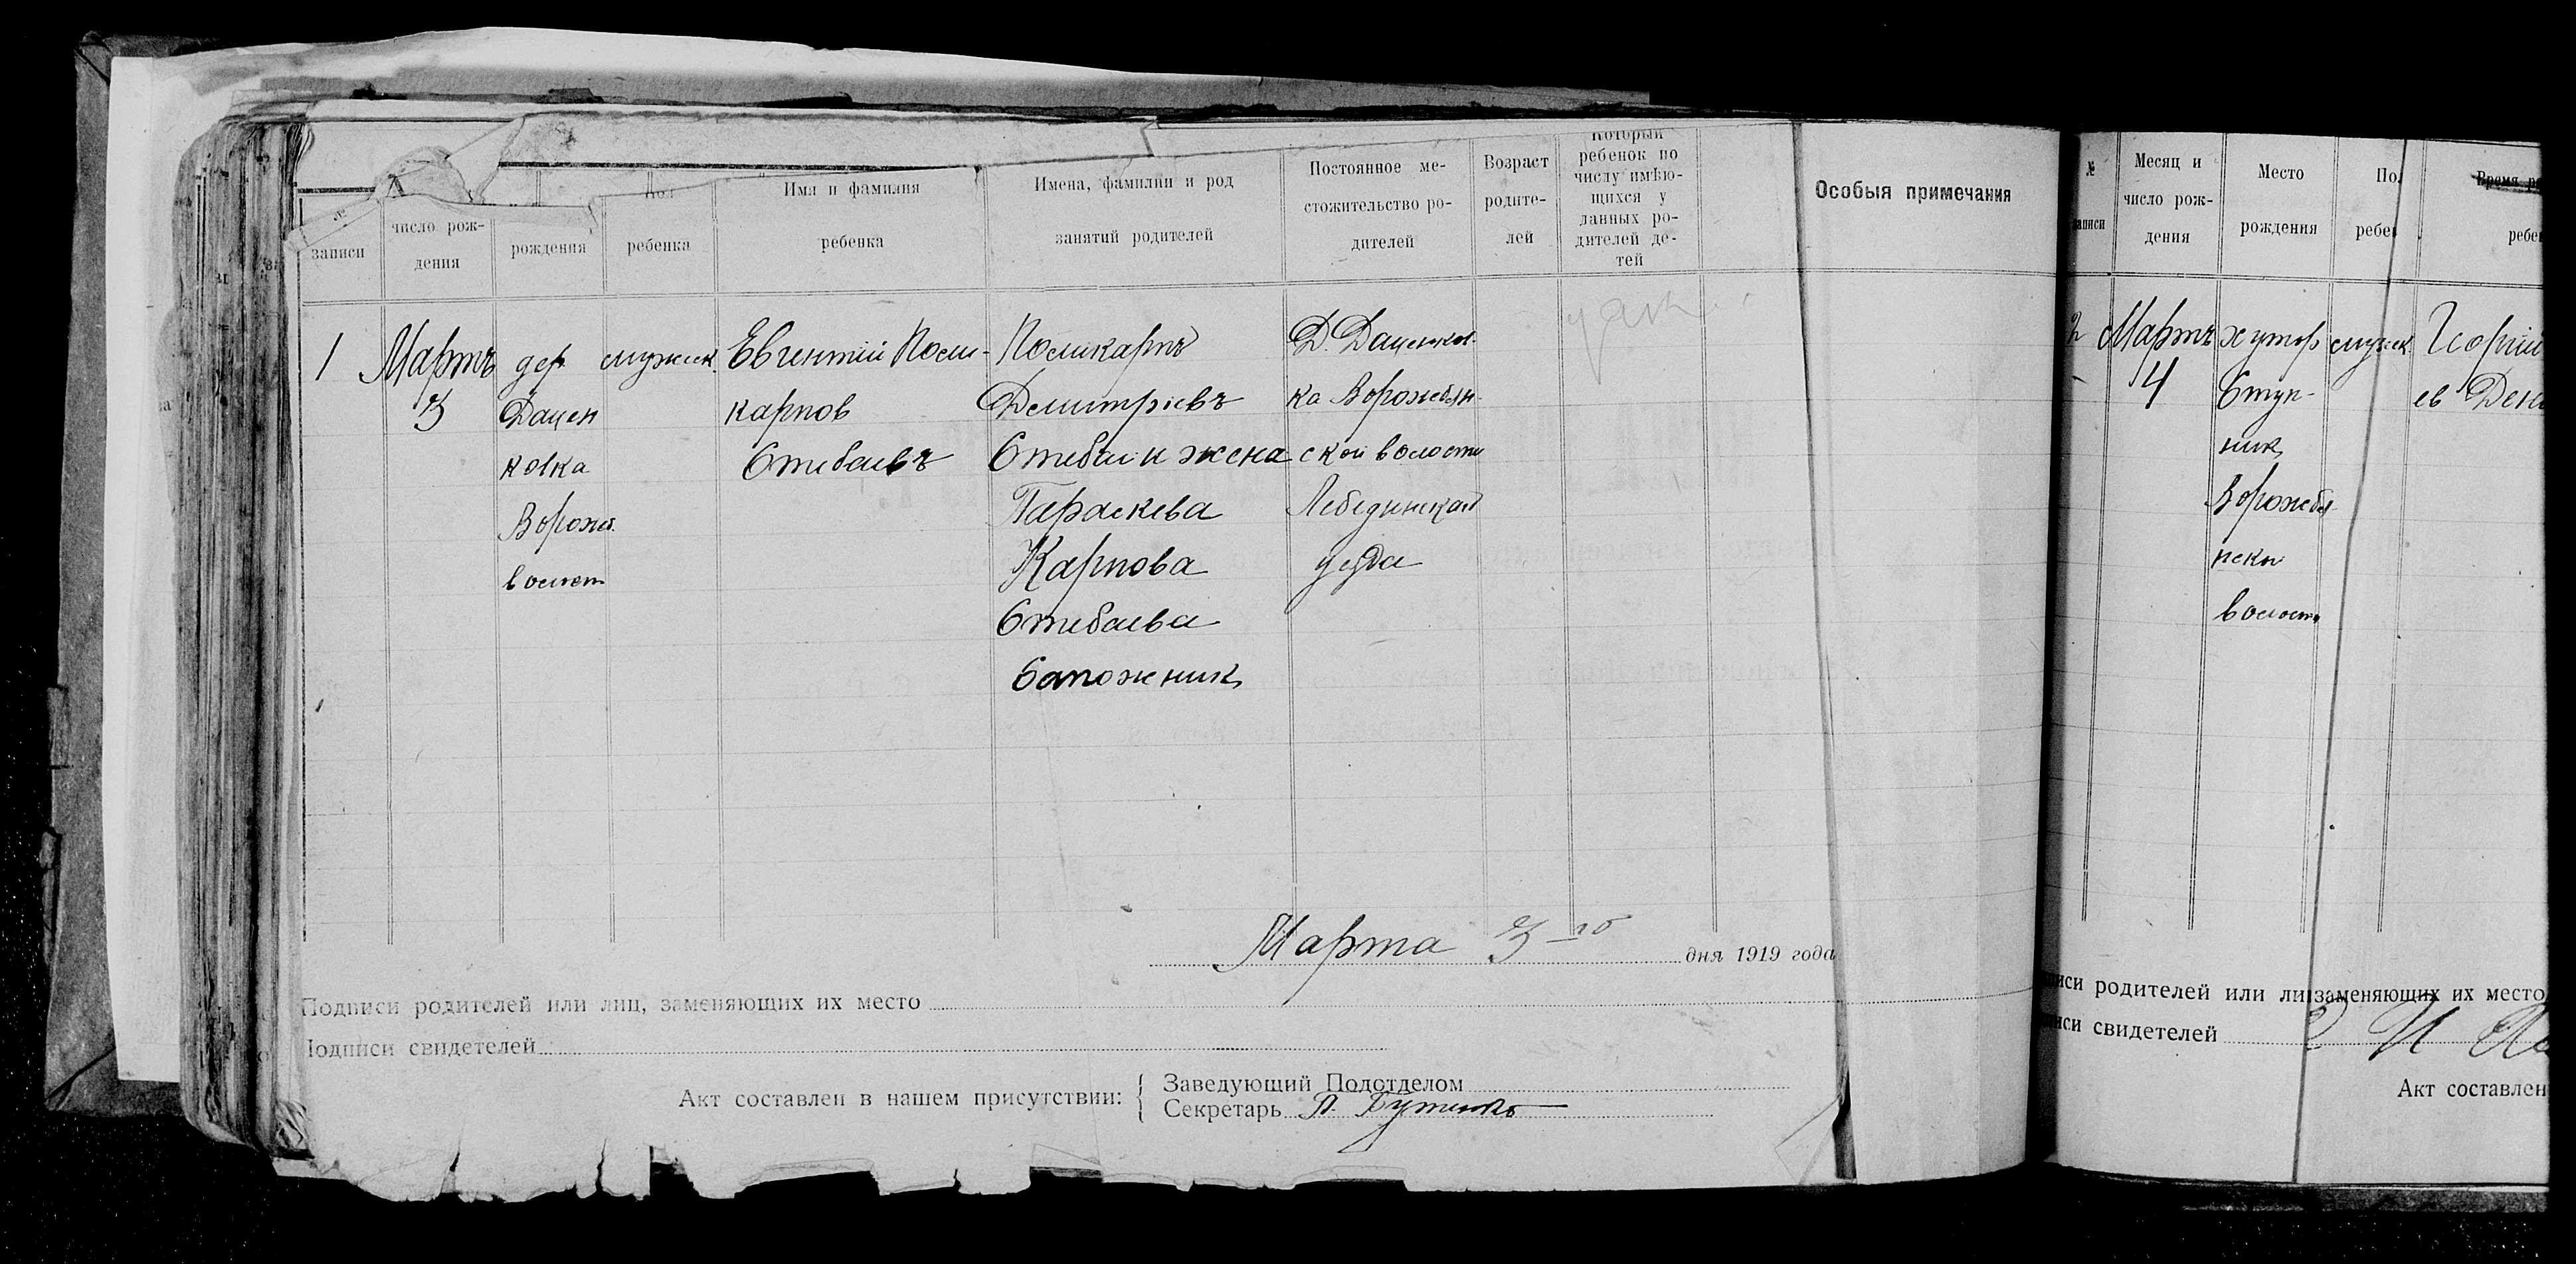 №
записи
число рож-
дения
рождения
Пол
ребенка
Имя и фамилия
ребенка
Имена, фамилии и род
занятий родителей
Постоянное ме-
стожительство ро-
дителей
Возраст
родите-
лей
Который
ребенок по
числу имѣю-
щихся у
данных ро-
дителей де-
тей
Особыя примечания
1
Мартъ
3
дер
Дацен
ковка
Ворожб.
волост
мужск.
Евгентій Поли-
карпов
Стебаевъ
Поликарпъ
Демитріевъ
Стебаи и жена
Параскева
Карпова
Стебаева
Сапожник
Д. Даценков
ка Ворожбян
ской волости
Лебединскаго
уезда
Марта 3-го дня 1919 года
Подписи родителей или лиц, заменяющих их место
Подписи свидетелей
Акт составлен в нашем присутствии:
Заведующий Подотделом
Секретарь П. Бутенко
№
записи
Месяц и
число рож-
дения
Место
рождения
Пол
ребен
Время р
ребен
2
Мартъ
4
хутор
Ступ-
ник
Ворожбя
нской
волости
мужск.
Георгій
ев Ден
писи родителей или ли заменяющих их место
писи свидетелей
Акт составлен